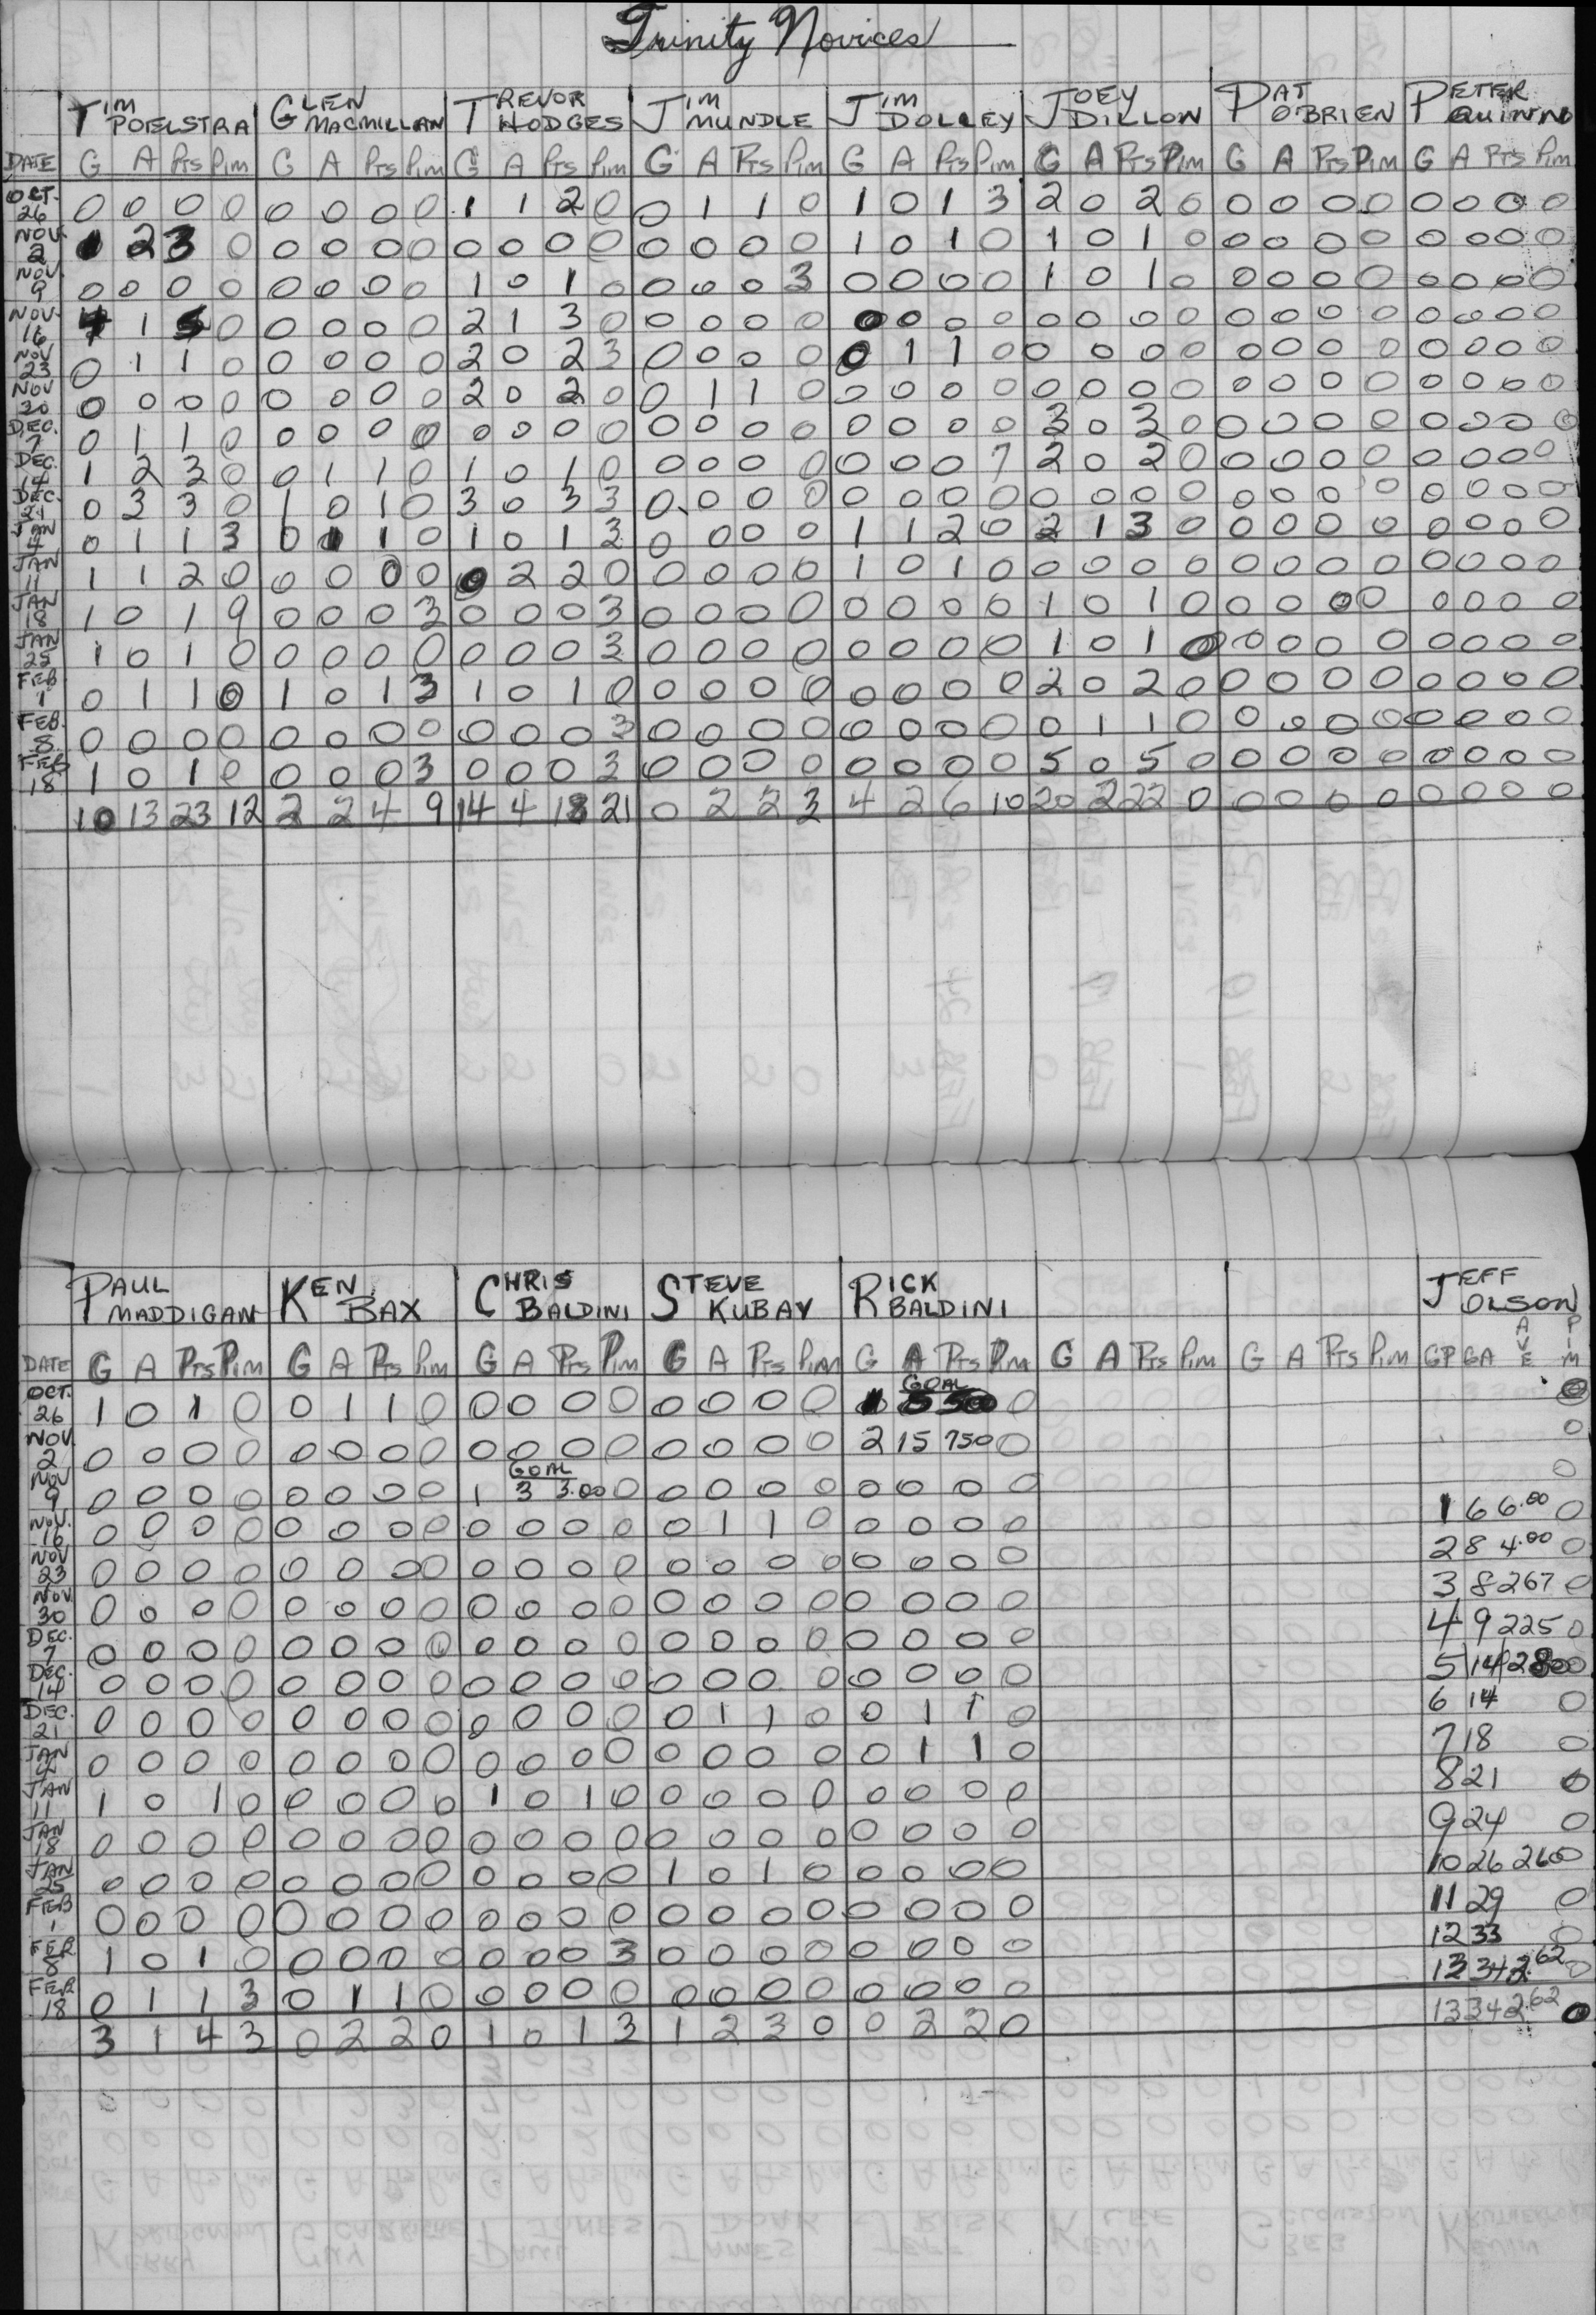 Trinity Novices
TIM POELSTRA GLEN MACMILLAN TREVOR HODGES JIM MUNDLE JIM DOLLEY JOEY DILLON PAT O'BRIEN PETER QUINN
DATE G A Pts Pim G A Pts Pim G A Pts Pim G A Pts Pim G A Pts Pim G A Pts Pim G A Pts Pim G A Pts Pim
OCT. 26 0 0 0 0 0 0 0 0 1 1 2 0 0 1 1 0 1 0 1 3 2 0 2 0 0 0 0 0 0 0 0 0
NOV. 2 1 2 3 0 0 0 0 0 0 0 0 0 0 0 0 0 1 0 1 0 1 0 1 0 0 0 0 0 0 0 0 0
NOV. 9 0 0 0 0 0 0 0 0 1 0 1 0 0 0 0 3 0 0 0 0 1 0 1 0 0 0 0 0 0 0 0 0
NOV. 16 4 1 5 0 0 0 0 0 2 1 3 0 0 0 0 0 0 0 0 0 0 0 0 0 0 0 0 0 0 0 0 0
NOV 23 0 1 1 0 0 0 0 0 2 0 2 3 0 0 0 0 0 1 1 0 0 0 0 0 0 0 0 0 0 0 0 0
NOV 30 0 0 0 0 0 0 0 0 2 0 2 0 0 1 1 0 0 0 0 0 0 0 0 0 0 0 0 0 0 0 0 0
DEC. 7 0 1 1 0 0 0 0 0 0 0 0 0 0 0 0 0 0 0 0 0 3 0 3 0 0 0 0 0 0 0 0 0
DEC. 14 1 2 3 0 0 1 1 0 1 0 1 0 0 0 0 0 0 0 0 7 2 0 2 0 0 0 0 0 0 0 0 0
DEC. 21 0 3 3 0 1 0 1 0 3 0 3 3 0 0 0 0 0 0 0 0 0 0 0 0 0 0 0 0 0 0 0 0
JAN 4 0 1 1 3 0 1 1 0 1 0 1 3 0 0 0 0 1 1 2 0 2 1 3 0 0 0 0 0 0 0 0 0
JAN 11 1 1 2 0 0 0 0 0 0 2 2 0 0 0 0 0 1 0 1 0 0 0 0 0 0 0 0 0 0 0 0 0
JAN 18 1 0 1 9 0 0 0 3 0 0 0 3 0 0 0 0 0 0 0 0 1 0 1 0 0 0 0 0 0 0 0 0
JAN 25 1 0 1 0 0 0 0 0 0 0 0 3 0 0 0 0 0 0 0 0 1 0 1 0 0 0 0 0 0 0 0 0
FEB 1 0 1 1 0 1 0 1 3 1 0 1 0 0 0 0 0 0 0 0 0 2 0 2 0 0 0 0 0 0 0 0 0
FEB. 8 0 0 0 0 0 0 0 0 0 0 0 3 0 0 0 0 0 0 0 0 0 1 1 0 0 0 0 0 0 0 0 0
FEB 18 1 0 1 0 0 0 0 3 0 0 0 3 0 0 0 0 0 0 0 0 5 0 5 0 0 0 0 0 0 0 0 0
10 13 23 12 2 2 4 9 14 4 18 21 0 2 2 3 4 2 6 10 20 2 22 0 0 0 0 0 0 0 0 0
PAUL MADDIGAN KEN BAX CHRIS BALDINI STEVE KUBAY RICK BALDINI JEFF OLSON
DATE G A Pts Pim G A Pts Pim G A Pts Pim G A Pts Pim G A Pts Pim G A Pts Pim G A Pts Pim GP GA AVE PIM
GOAL
OCT. 26 1 0 1 0 0 1 1 0 0 0 0 0 0 0 0 0 1 0 0
NOV. 2 0 0 0 0 0 0 0 0 0 0 0 0 0 0 0 0 2 15 750 0 0
GOAL
NOV 9 0 0 0 0 0 0 0 0 1 3 3.00 0 0 0 0 0 0 0 0 0 0
NOV. 16 0 0 0 0 0 0 0 0 0 0 0 0 0 1 1 0 0 0 0 0 1 6 6.00 0
NOV 23 0 0 0 0 0 0 0 0 0 0 0 0 0 0 0 0 0 0 0 0 2 8 4.00 0
NOV. 30 0 0 0 0 0 0 0 0 0 0 0 0 0 0 0 0 0 0 0 0 3 8 267 0
DEC. 7 0 0 0 0 0 0 0 0 0 0 0 0 0 0 0 0 0 0 0 0 4 9 225 0
DEC. 14 0 0 0 0 0 0 0 0 0 0 0 0 0 0 0 0 0 0 0 0 5 14 280 0
DEC. 21 0 0 0 0 0 0 0 0 0 0 0 0 0 1 1 0 0 1 1 0 6 14 0
JAN 4 0 0 0 0 0 0 0 0 0 0 0 0 0 0 0 0 0 1 1 0 7 18 0
JAN 11 1 0 1 0 0 0 0 0 1 0 1 0 0 0 0 0 0 0 0 0 8 21 0
JAN 18 0 0 0 0 0 0 0 0 0 0 0 0 0 0 0 0 0 0 0 0 9 24 0
JAN 25 0 0 0 0 0 0 0 0 0 0 0 0 1 0 1 0 0 0 0 0 10 26 260 0
FEB 1 0 0 0 0 0 0 0 0 0 0 0 0 0 0 0 0 0 0 0 0 11 29 0
FEB. 8 1 0 1 0 0 0 0 0 0 0 0 3 0 0 0 0 0 0 0 0 12 33 0
FEB 18 0 1 1 3 0 1 1 0 0 0 0 0 0 0 0 0 0 0 0 0 13 34 2.62 0
3 1 4 3 0 2 2 0 1 0 1 3 1 2 3 0 0 2 2 0 13 34 2.62 0